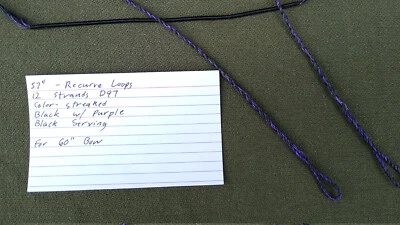 57" - Recurve Loops
12 Strands D97
Color - streaked
Black w/ Purple
Black Serving
For 60" Bow